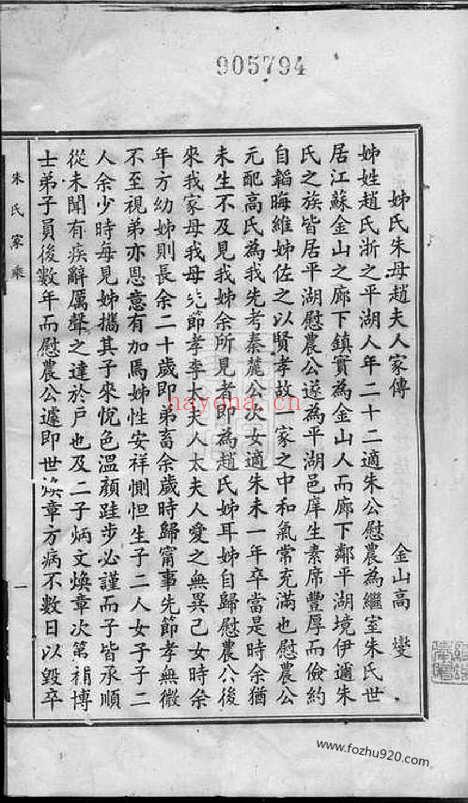 905794
姊氏朱母趙夫人家傳
金山高燮
姊姓趙氏浙之平湖人年二十二適朱公慰農為繼室朱氏世
居江蘇金山之廊下鎮實為金山人而廊下鄰平湖境伊邇朱
氏之族皆居平湖慰農公遂為平湖邑庠生素席豐厚而儉約
自韜晦維姊佐之以賢孝故一家之中和氣常充滿也慰農公
元配高氏為我先考秦麓公公女適朱未一年卒當是時余猶
未生不及見我姊余所見者即為趙氏姊耳姊自歸慰農公後
來我家母我母先節孝李太夫人太夫人愛之無異己女時余
年方幼姊則長余二十歲即弟畜余歲時歸甯事先節孝無微
不至視弟亦恩意有加焉姊性安祥惻怛生子二人女子子二
人余少時每見姊攜其子來悅色溫顏跬步必謹而子皆承順
從未聞有疾辭厲聲之達於戶也及二子炳文煥章次第補博
士弟子員後數年而慰農公遽即世煥章方病不數日以毀卒
朱氏家乘
一
nayona.cn
www.fozhu920.com